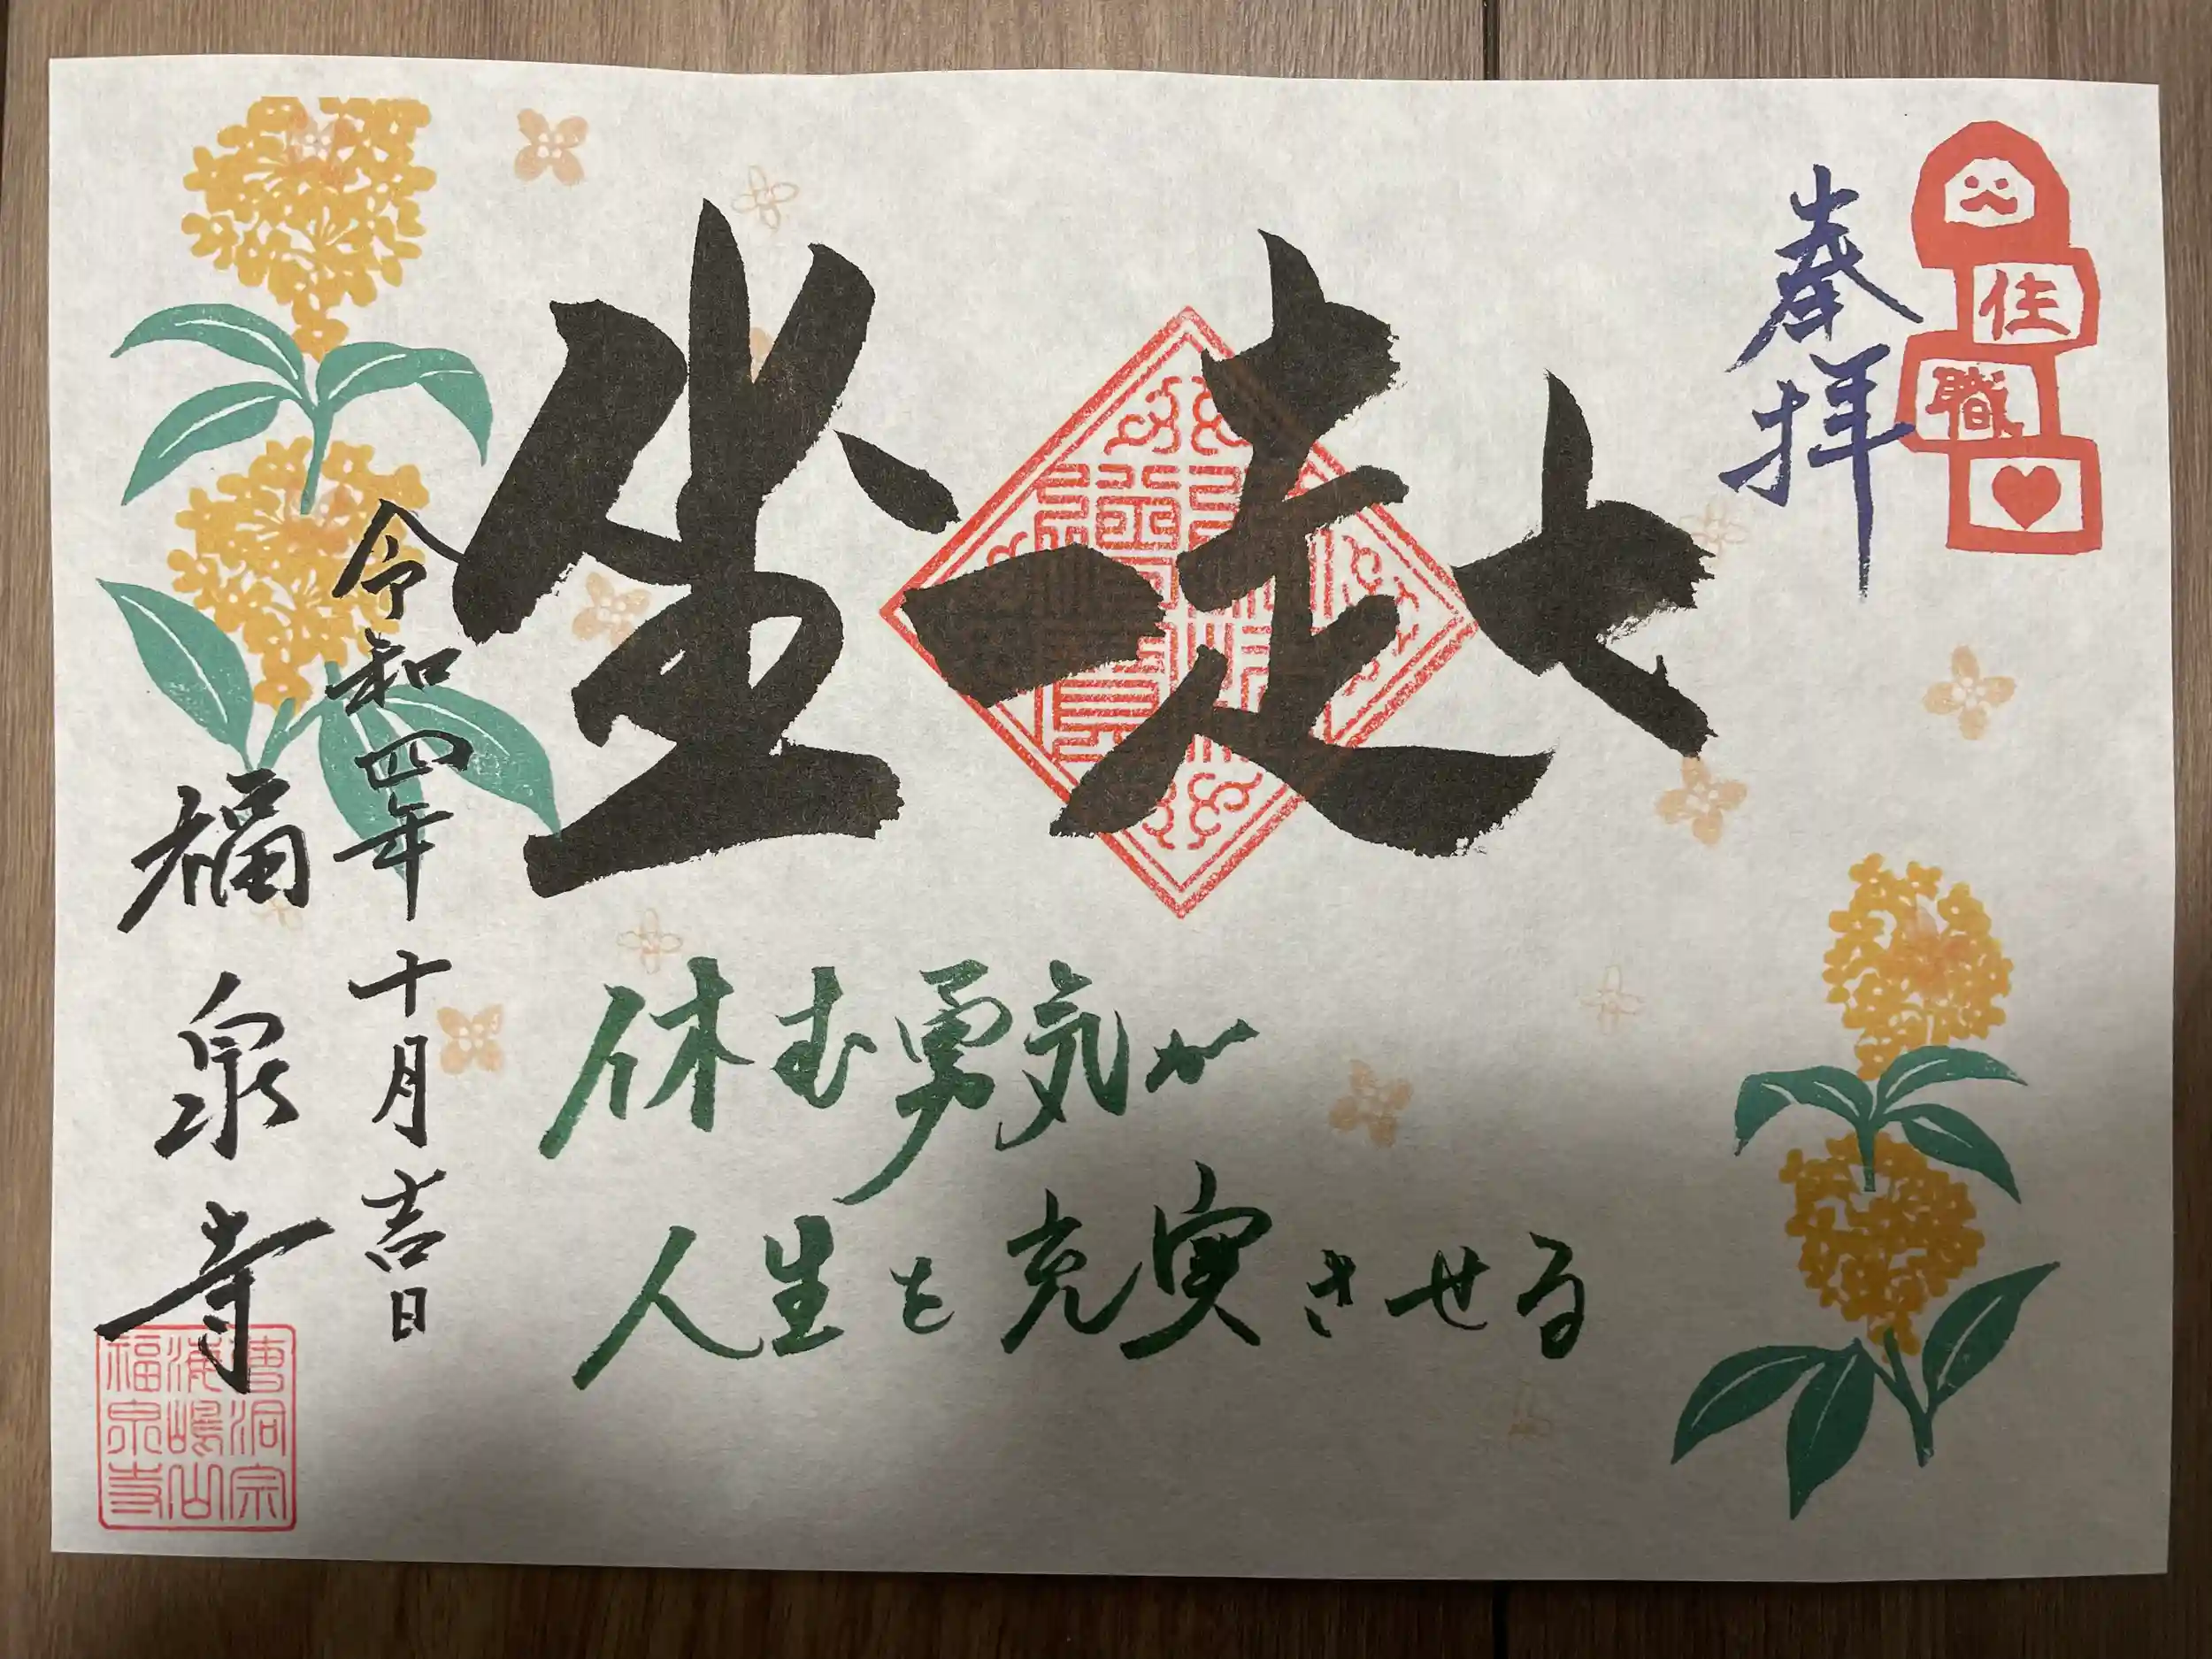 奉拝
住職
七走一坐
休む勇気が
人生を充実させる
令和四年十月吉日
福泉寺
曹洞宗
海嶋山
福泉寺